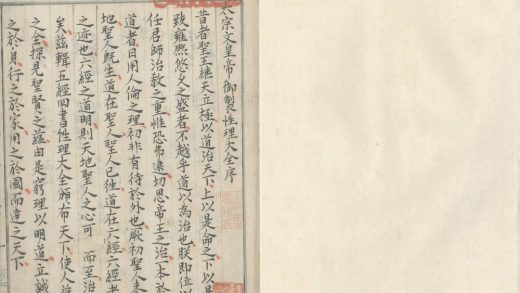 太宗文皇帝御製性理大全序
昔者聖王繼天立極以道治天下上以是命之下以是
致雍熈悠久之盛者不越乎道以為治也朕即位以
任君師治教之重惟恐弗逮切思帝王之治一本於
道者曰用人倫之理初非有待於外也厥初聖人未
地聖人既生道在聖人聖人已徃道在六經六經者
之迹也六經之道明則天地聖人之心可 而至治
矣茲輯五經四書性理大全頒布天下使人
之全探見聖賢之蘊由是窮理以明道立誠
之於身行之於家用之於國而達之天下